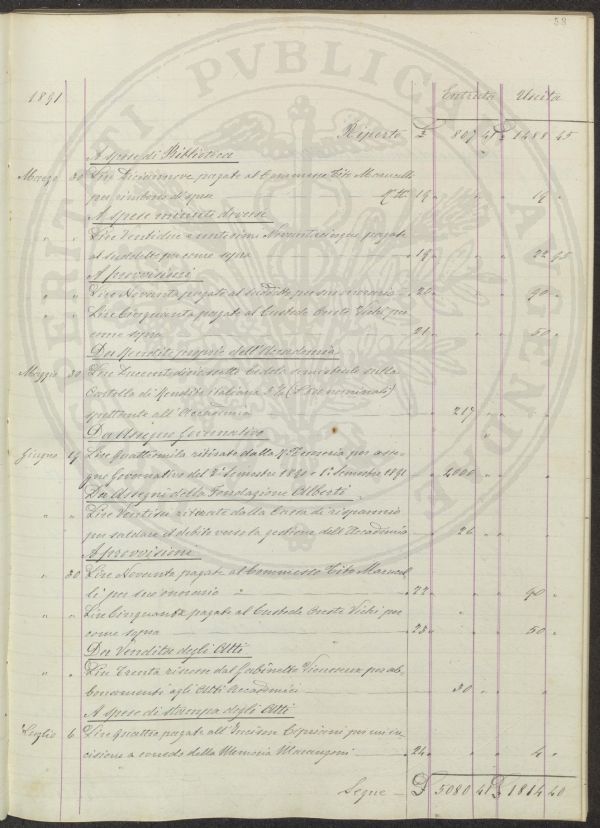 58
PERITI PVBLICAE AVGENDAE
1891
Entrata Uscita
Riporto £ 807 41 £ 1488 45
A spese di Biblioteca
Marzo 30 Lire Diciannove pagate al Commesso Tito Marucelli
per rimborso di spese M.tto 18 " " " 19 "
A spese minute diverse
" " Lire Ventidue e centesimi Novantacinque pagate
al suddetto per come sopra 19 " " " 22 95
A provvisioni
" " Lire Novanta pagate al suddetto per suo onorario 20 " " " 90 "
" " Lire Cinquanta pagate al Custode Oreste Vichi per
come sopra 21 " " " 50 "
Da Rendite proprie dell'Accademia
Maggio 30 Lire Duecentodiciassette semestrale sulla
Cartella di Rendita Italiana 5 % nominali)
spettante all'Accademia " 217 " " "
Da Assegno Governativo
Giugno 19 Lire Quattromila ritirate dalla R. Tesoreria per asse-
gno Governativo del 2° Semestre 1890 e 1° Semestre 1891 " 4000 " " "
Da Assegni della Fondazione Alberti
" " Lire Ventisei ritirate dalla Cassa di risparmio
per saldare il debito verso la gestione dell'Accademia " 26 " " "
A provvisioni
" 30 Lire Novanta pagate al Commesso Tito Marucel-
li per suo onorario " 22 " " " 90 "
" " Lire Cinquanta pagate al Custode Oreste Vichi per
come sopra 23 " " " 50 "
Da Vendita degli Atti
" " Lire Trenta riscosse dal Gabinetto Vieusseux per ab-
bonamenti agli Atti Accademici " 30 " " "
A spese di stampa degli Atti
Luglio 6 Lire Quattro pagate all'Incisore Cipriani per un'in-
cisione a corredo della Memoria Marangoni 24 " " " 4 "
Segue £ 5080 41 £ 1814 40